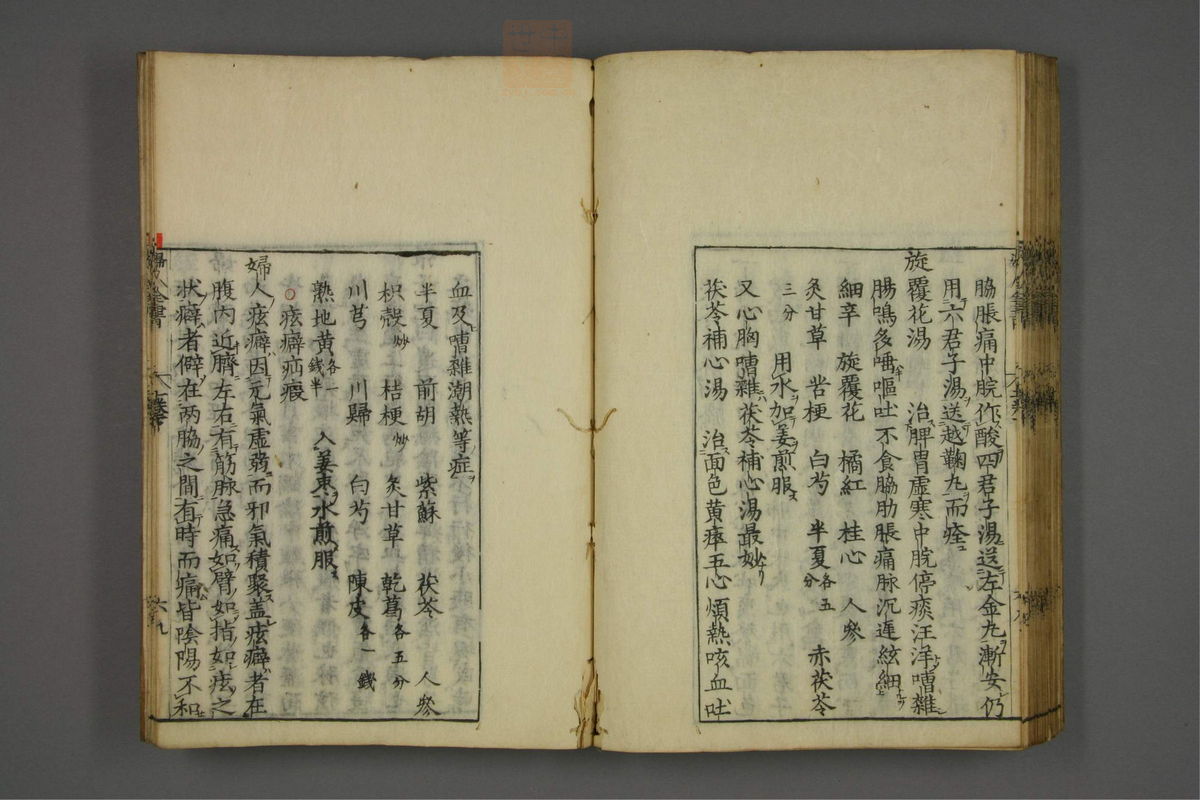 脇脹痛中脘作酸四君子湯送左金丸漸安仍
用六君子湯送越鞠丸而痊
旋覆花湯 治脾胃虛寒中脘停痰汪洋嘈雜
腸鳴多唾嘔吐不食脇肋脹痛脉沉遲絃細
細辛 旋覆花 橘紅 桂心 人參
炙甘草 苦梗 白芍 半夏各五分 赤茯苓
三分 用水加姜煎服
又心胸嘈雜茯苓補心湯最妙
茯苓補心湯 治面色黃瘁五心煩熱咳血吐
血及嘈雜潮熱等症
半夏 前胡 紫蘇 茯苓 人參
枳殼炒 桔梗炒 炙甘草 乾葛各五分
川芎 川歸 白芍 陳皮各一錢
熟地黃各一錢半 入姜棗水煎服
○痃癖疝瘕
婦人痃癖因元氣虛弱而邪氣積聚盖痃癖者在
腹內近臍左右有筋脉急痛如臂如指如痃之
狀癖者僻在兩脇之間有時而痛皆陰陽不和